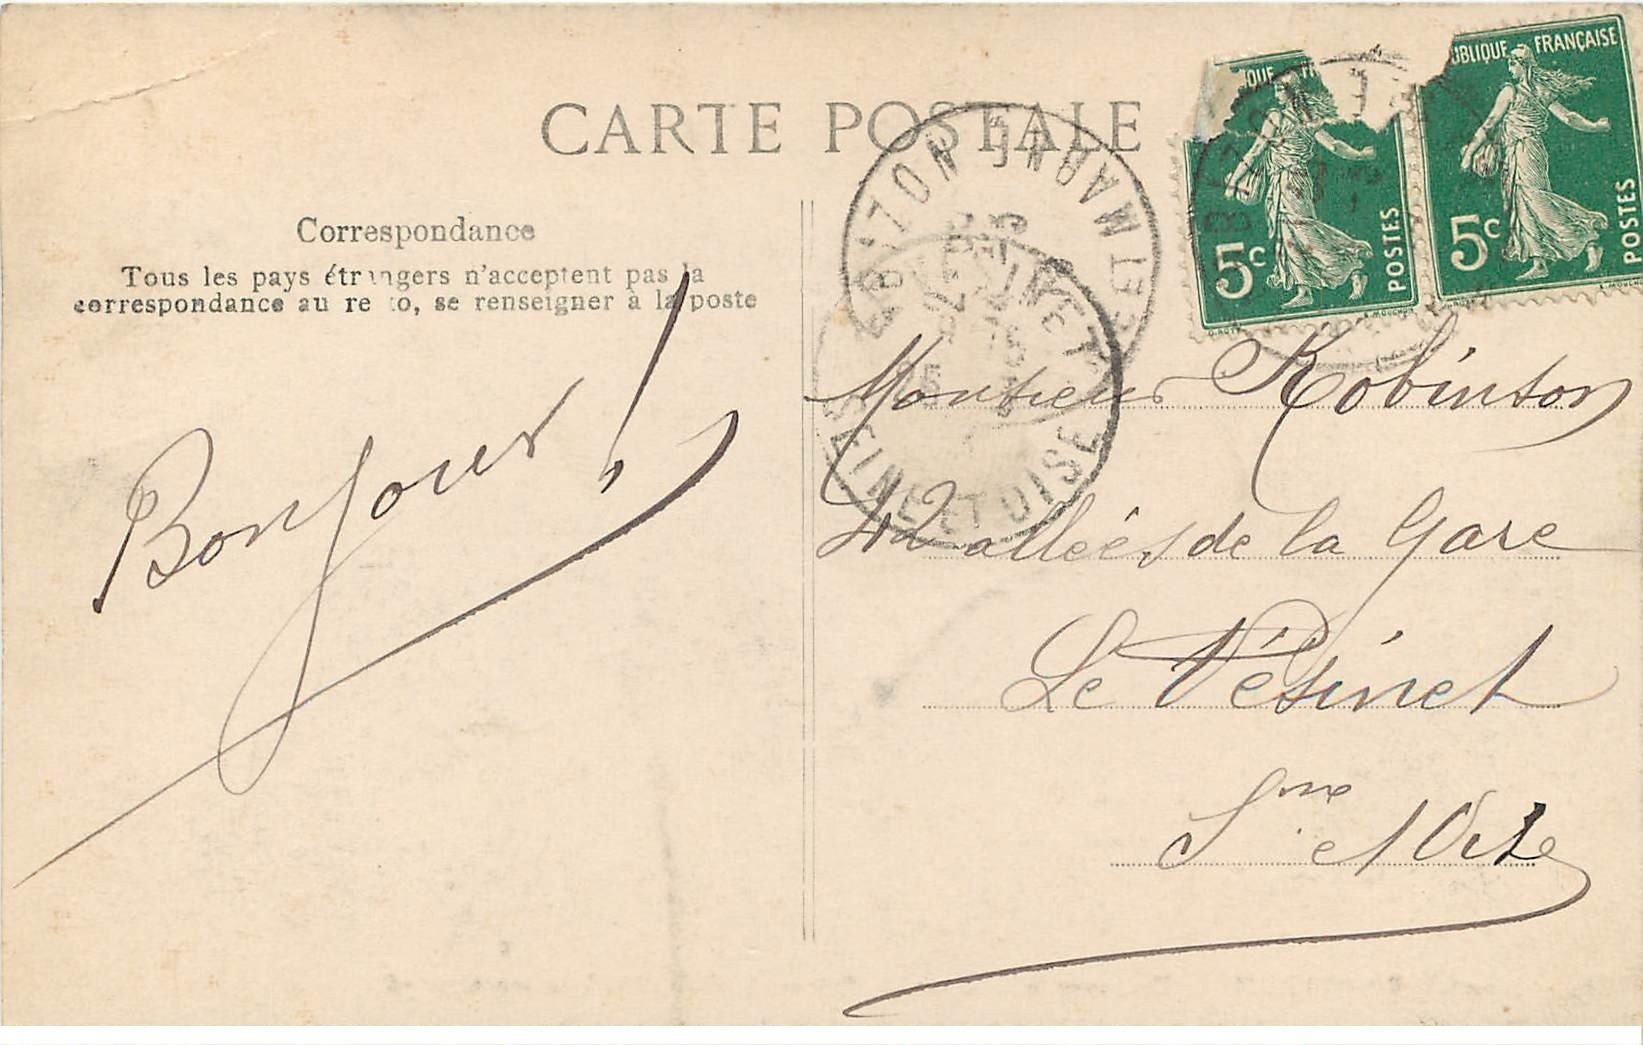 CARTE POSTALE
Correspondance
Tous les pays étrangers n'acceptent pas la
correspondance au recto, se renseigner à la poste
Bonjour !
RÉPUBLIQUE FRANÇAISE
5c POSTES
5c POSTES
ET MARNE
VÉSINET
SEINE ET OISE
Monsieur Robinson
42 allées de la Gare
Le Vésinet
Sne et Oise